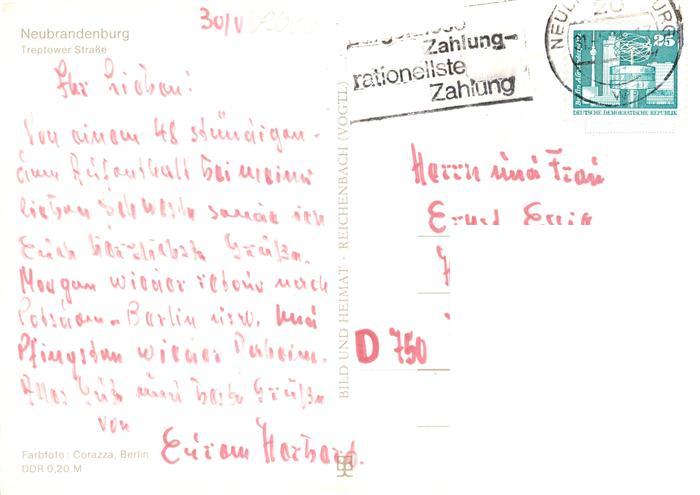 Neubrandenburg
Treptower Straße
30/V
Ihr Lieben!
Von einem 48 stündigen
Aufenthalt bei meiner
lieben Schwester sende ich
Euch herzlichste Grüße.
Morgen wieder retour nach
Potsdam - Berlin usw. und
Pfingsten wieder Daheim.
Alles Gute und beste Grüße
von
Eurem Herbert.
Farbfoto: Corazza, Berlin
DDR 0,20 M
BILD UND HEIMAT · REICHENBACH (VOGTL)
Zahlung-
rationellste
Zahlung
25
DEUTSCHE DEMOKRATISCHE REPUBLIK
Herrn und Frau
Ernst
D 750